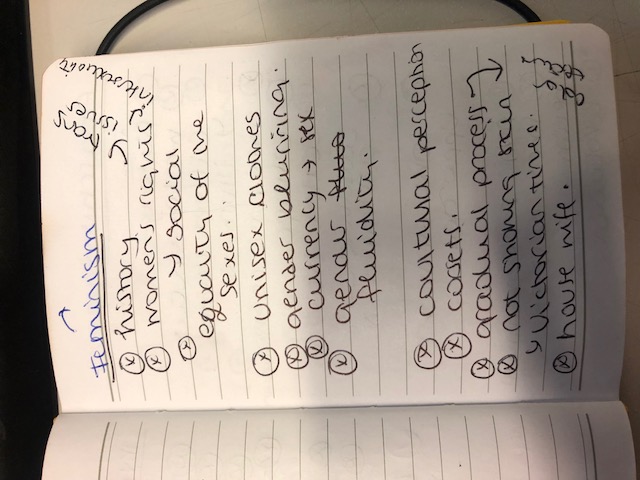 feminism
trans
issues
intersexuality
history
womens rights
→ social
equality of the
sexes.
unisex clothes
gender blurring.
currency → sex
gender
fluidity.
coultural perception
cosets.
gradual process
not showing skin
↳ Victorian times.
house wife.